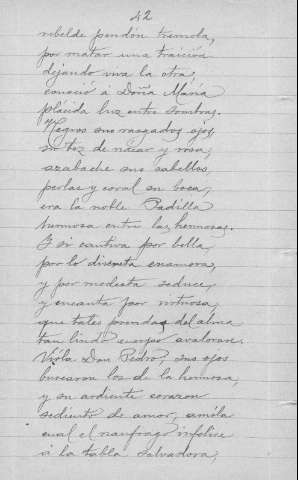 42
rebelde pendón tremola,
por matar una traición
dejando viva la otra,
conoció á Doña María
plácida luz entre sombras.
Negros sus rasgados ojos,
su tez de nácar y rosa,
azabache sus cabellos,
perlas y coral su boca,
era la noble Padilla
hermosa entre las hermosas.
Y si cautiva por bella,
por lo discreta enamora,
y por modesta seduce,
y encanta por virtuosa,
que tales prendas del alma
tan lindo cuerpo avaloran.
Vióla Don Pedro, sus ojos
buscaron los de la hermosa,
y su ardiente corazon
sediento de amor, amóla
cual el naufrago infelice
á la tabla salvadora,